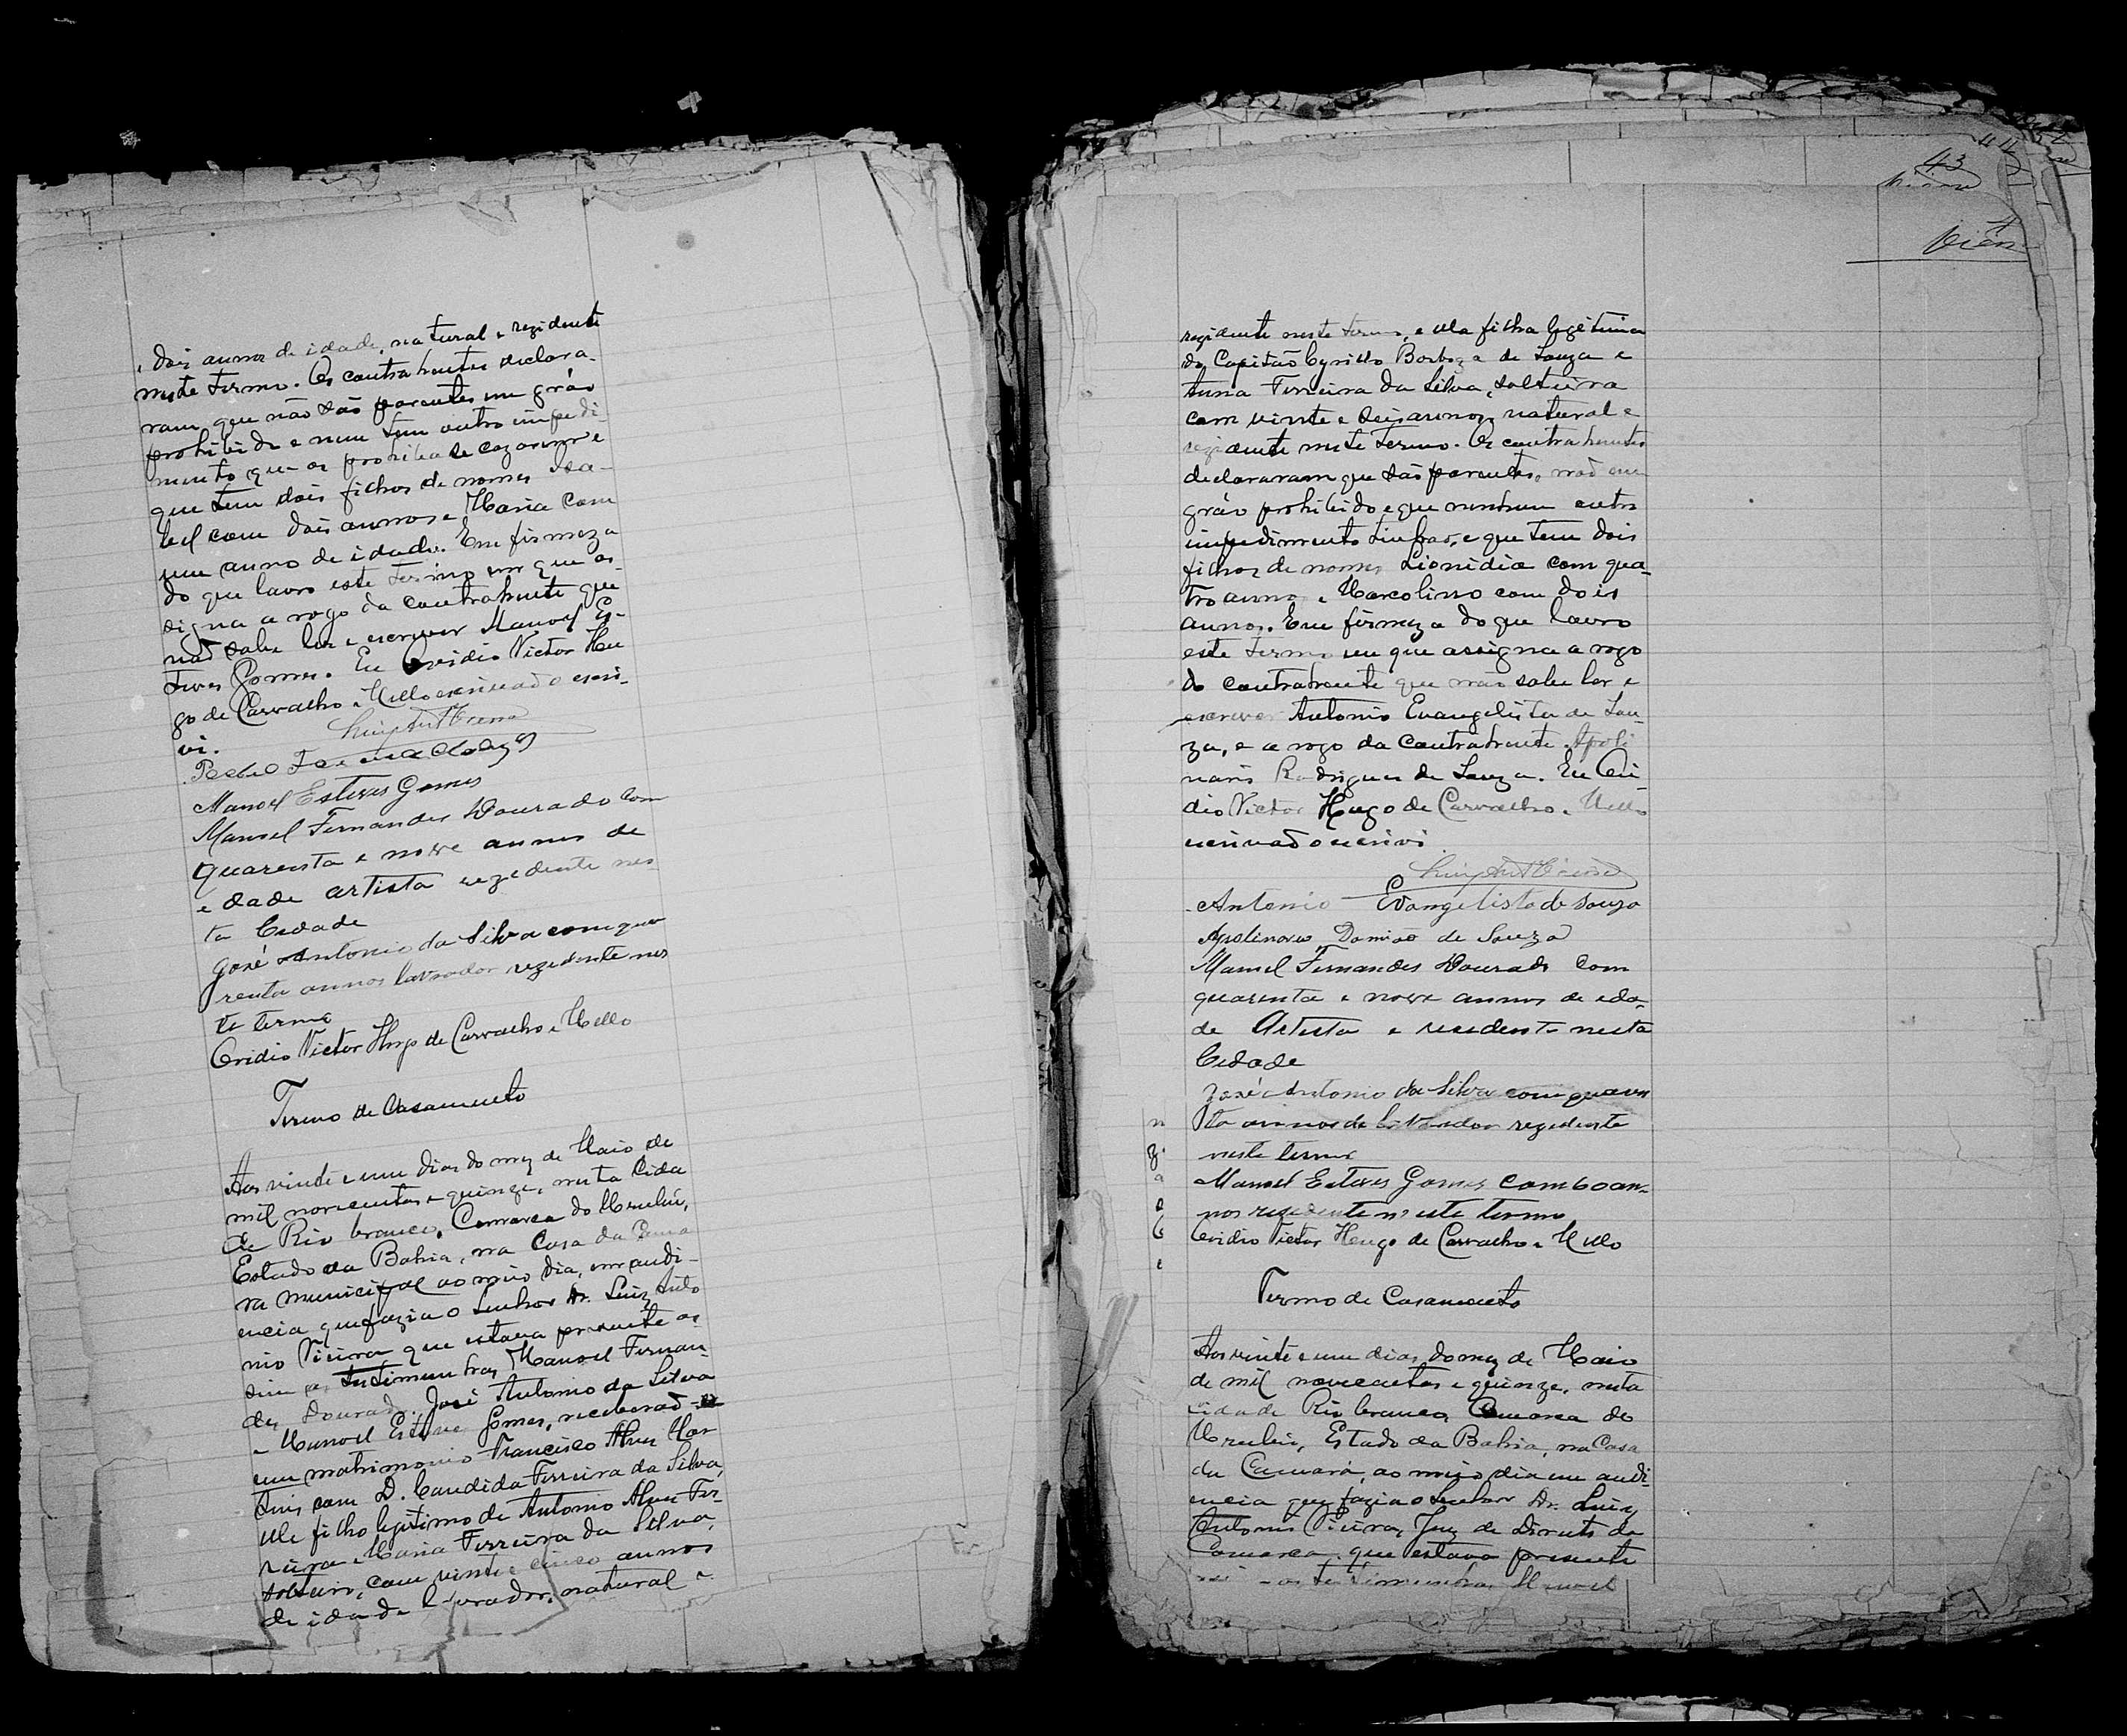 dois annos de idade, natural e rezidente
neste termo. Os contrahentes declara-
ram que não são parentes em gráo
prohibido e nem tem outro impedi-
mento que os prohiba de cazarem e
que tem dois filhos de nomes Isa-
bel com dois annos e Maria com
um anno de idade. Em firmeza
do que lavro este termo em que as-
signa a rogo da contrahente que
não sabe ler e escrever Manoel Es-
teves Gomes. Eu Ovidio Victor Hu
go de Carvalho e Mello escrivão o escre-
vi.
Luiz Ant Vieira
Pedro
Manoel Esteves Gomes
Manoel Fernandes Dourado com
quarenta e nove annos de
edade artista rezedente nes
ta Cidade
José Antonio da Silva com qua
renta annos lavrador rezedente nes
te termo
Ovidio Victor Hugo de Carvalho e Mello
Termo de Casamento
Aos vinte e um dias do mez de Maio de
mil novecentos e quinze, nesta Cida
de Rio branco, Comarca do Urubú,
Estado da Bahia, na Casa da Cama
ra municipal ao meio dia, em audi-
encia que fazia o Senhor Dr. Luiz Anto
nio Vieira que estava presente as-
sim as testimunhas Manoel Fernan-
des Dourado, José Antonio da Silva
e Manoel Esteves Gomes, receberão-se
em matrimonio Francisco Alves Mar
tins com D. Candida Ferreira da Silva,
elle filho legitimo de Antonio Alves Fer-
reira e Maria Ferreira da Silva,
solteiro, com vinte e cinco annos
de idade lavrador, natural e
43
44
rezidente neste termo, e ella filha legitima
do Capitão Cyrillo Barboza de Souza e
Anna Ferreira da Silva, solteira
com vinte e seis annos, natural e
rezidente neste termo. Os contrahentes
declararam que são parentes, não em
gráo prohibido e que nenhum outro
impedimento tinhão, e que tem dois
filhos de nomes Lionidia com qua-
tro annos e Marcolino com dois
annos. Em firmeza do que lavro
este termo em que assigna a rogo
do contrahente que não sabe ler e
escrever Antonio Evangelista de Sou-
za, e a rogo da Contrahente Apoli
nario Rodrigues de Souza. Eu Ovi-
dio Victor Hugo de Carvalho e Mello
escrivão o escrivi
Luiz Ant Vieira
Antonio Evangelista de Souza
Apolinario Damião de Souza
Manoel Fernandes Dourado com
quarenta e nove annos de eda-
de Artista e resedente nesta
Cidade
José Antonio da Silva com quaren
ta annos de lavrador rezedente
neste termo
Manoel Esteves Gomes com 60 an-
nos resedente n'este termo
Ovidio Victor Hugo de Carvalho e Mello
Termo de Casamento
Aos vinte e um dias do mez de Maio
de mil novecentos e quinze, nesta
cidade Rio branco, Comarca do
Urubú, Estado da Bahia, na Casa
da Camara, ao meio dia em audi-
encia que fazia o Senhor Dr. Luiz
Antonio Vieira, Juiz de Direito da
Comarca, que estava presente
as testimunhas Manoel